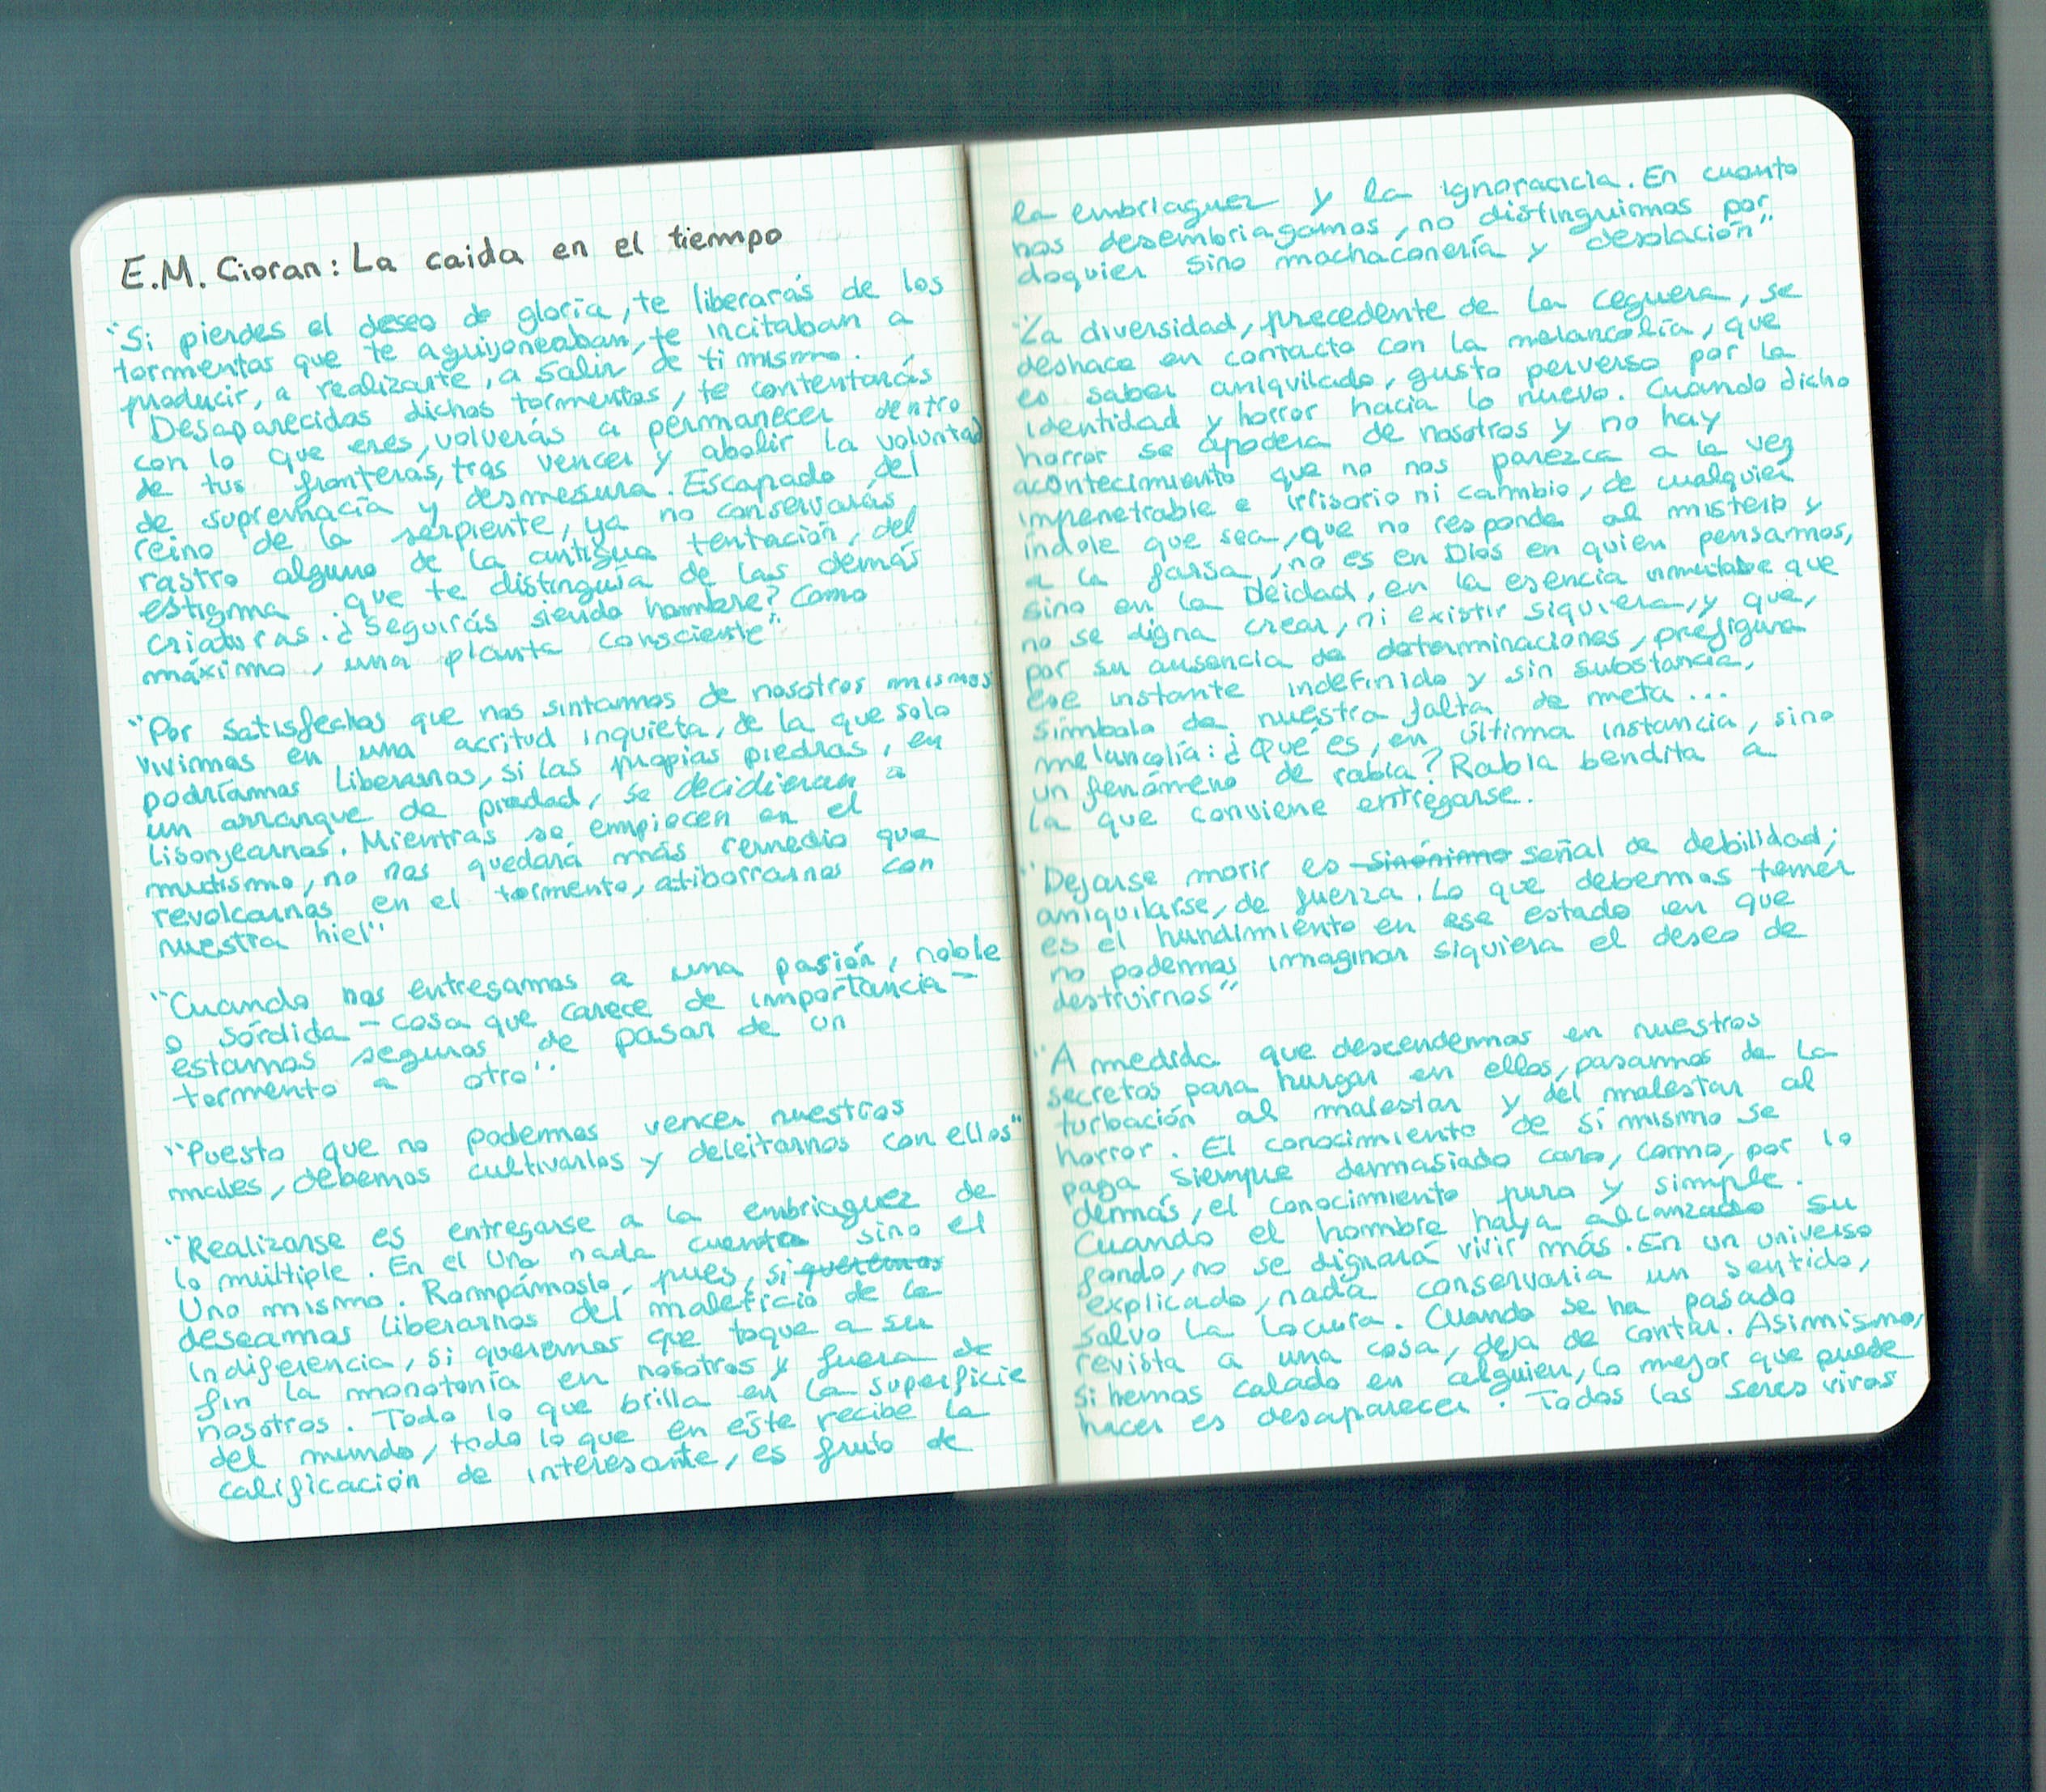 E.M. Cioran: La caida en el tiempo
"Si pierdes el deseo de gloria, te liberarás de los
tormentos que te aguijoneaban, te incitaban a
producir, a realizarte, a salir de ti mismo.
Desaparecidos dichos tormentos, te contentarás
con lo que eres, volverás a permanecer dentro
de tus fronteras, tras vencer y abolir la voluntad
de supremacía y desmesura. Escapado del
reino de la serpiente, ya no conservarás
rastro alguno de la antigua tentación, del
estigma que te distinguía de las demás
criaturas. ¿Seguirás siendo hombre? Como
máximo, una planta consciente".
"Por satisfechos que nos sintamos de nosotros mismos
vivimos en una acritud inquieta, de la que solo
podríamos liberarnos, si las propias piedras, en
un arranque de piedad, se decidieran a
lisonjearnos. Mientras se empiecen en el
mutismo, no nos quedará más remedio que
revolcarnos en el tormento, atiborrarnos con
nuestra hiel"
"Cuando nos entregamos a una pasión, noble
o sórdida - cosa que carece de importancia -
estamos seguros de pasar de un
tormento a otro".
"Puesto que no podemos vencer nuestros
males, debemos cultivarlos y deleitarnos con ellos"
"Realizarse es entregarse a la embriaguez de
lo múltiple. En el Uno nada cuenta sino el
Uno mismo. Rompámoslo, pues, si queremos
deseamos liberarnos del maleficio de la
indiferencia, si queremos que toque a su
fin la monotonía en nosotros y fuera de
nosotros. Todo lo que brilla en la superficie
del mundo, todo lo que en este recibe la
calificación de interesante, es fruto de
la embriaguez y la ignorancia. En cuanto
nos desembriagamos, no distinguimos por
doquier sino machaconería y desolación"
"La diversidad, precedente de la ceguera, se
deshace en contacto con la melancolía, que
es saber aniquilado, gusto perverso por la
identidad y horror hacia lo nuevo. Cuando dicho
horror se apodera de nosotros y no hay
acontecimiento que no nos parezca a la vez
impenetrable e irrisorio ni cambio, de cualquier
índole que sea, que no responda al misterio y
a la farsa, no es en Dios en quien pensamos,
sino en la Deidad, en la esencia inmutable que
no se digna crear, ni existir siquiera, y que,
por su ausencia de determinaciones, prefigura
ese instante indefinido y sin substancia,
símbolo de nuestra falta de meta...
melancolía: ¿Qué es, en última instancia, sino
un fenómeno de rabia? Rabia bendita a
la que conviene entregarse.
"Dejarse morir es sinónimo señal de debilidad;
aniquilarse, de fuerza. Lo que debemos temer
es el hundimiento en ese estado en que
no podemos imaginar siquiera el deseo de
destruirnos"
"A medida que descendemos en nuestros
secretos para hurgar en ellos, pasamos de la
turbación al malestar y del malestar al
horror. El conocimiento de sí mismo se
paga siempre demasiado caro, como, por lo
demás, el conocimiento puro y simple.
Cuando el hombre haya alcanzado su
fondo, no se dignará vivir más. En un universo
explicado, nada conservaria un sentido,
salvo la locura. Cuando se ha pasado
revista a una cosa, deja de contar. Asimismo,
si hemos calado en alguien, lo mejor que puede
hacer es desaparecer. Todos los seres vivos